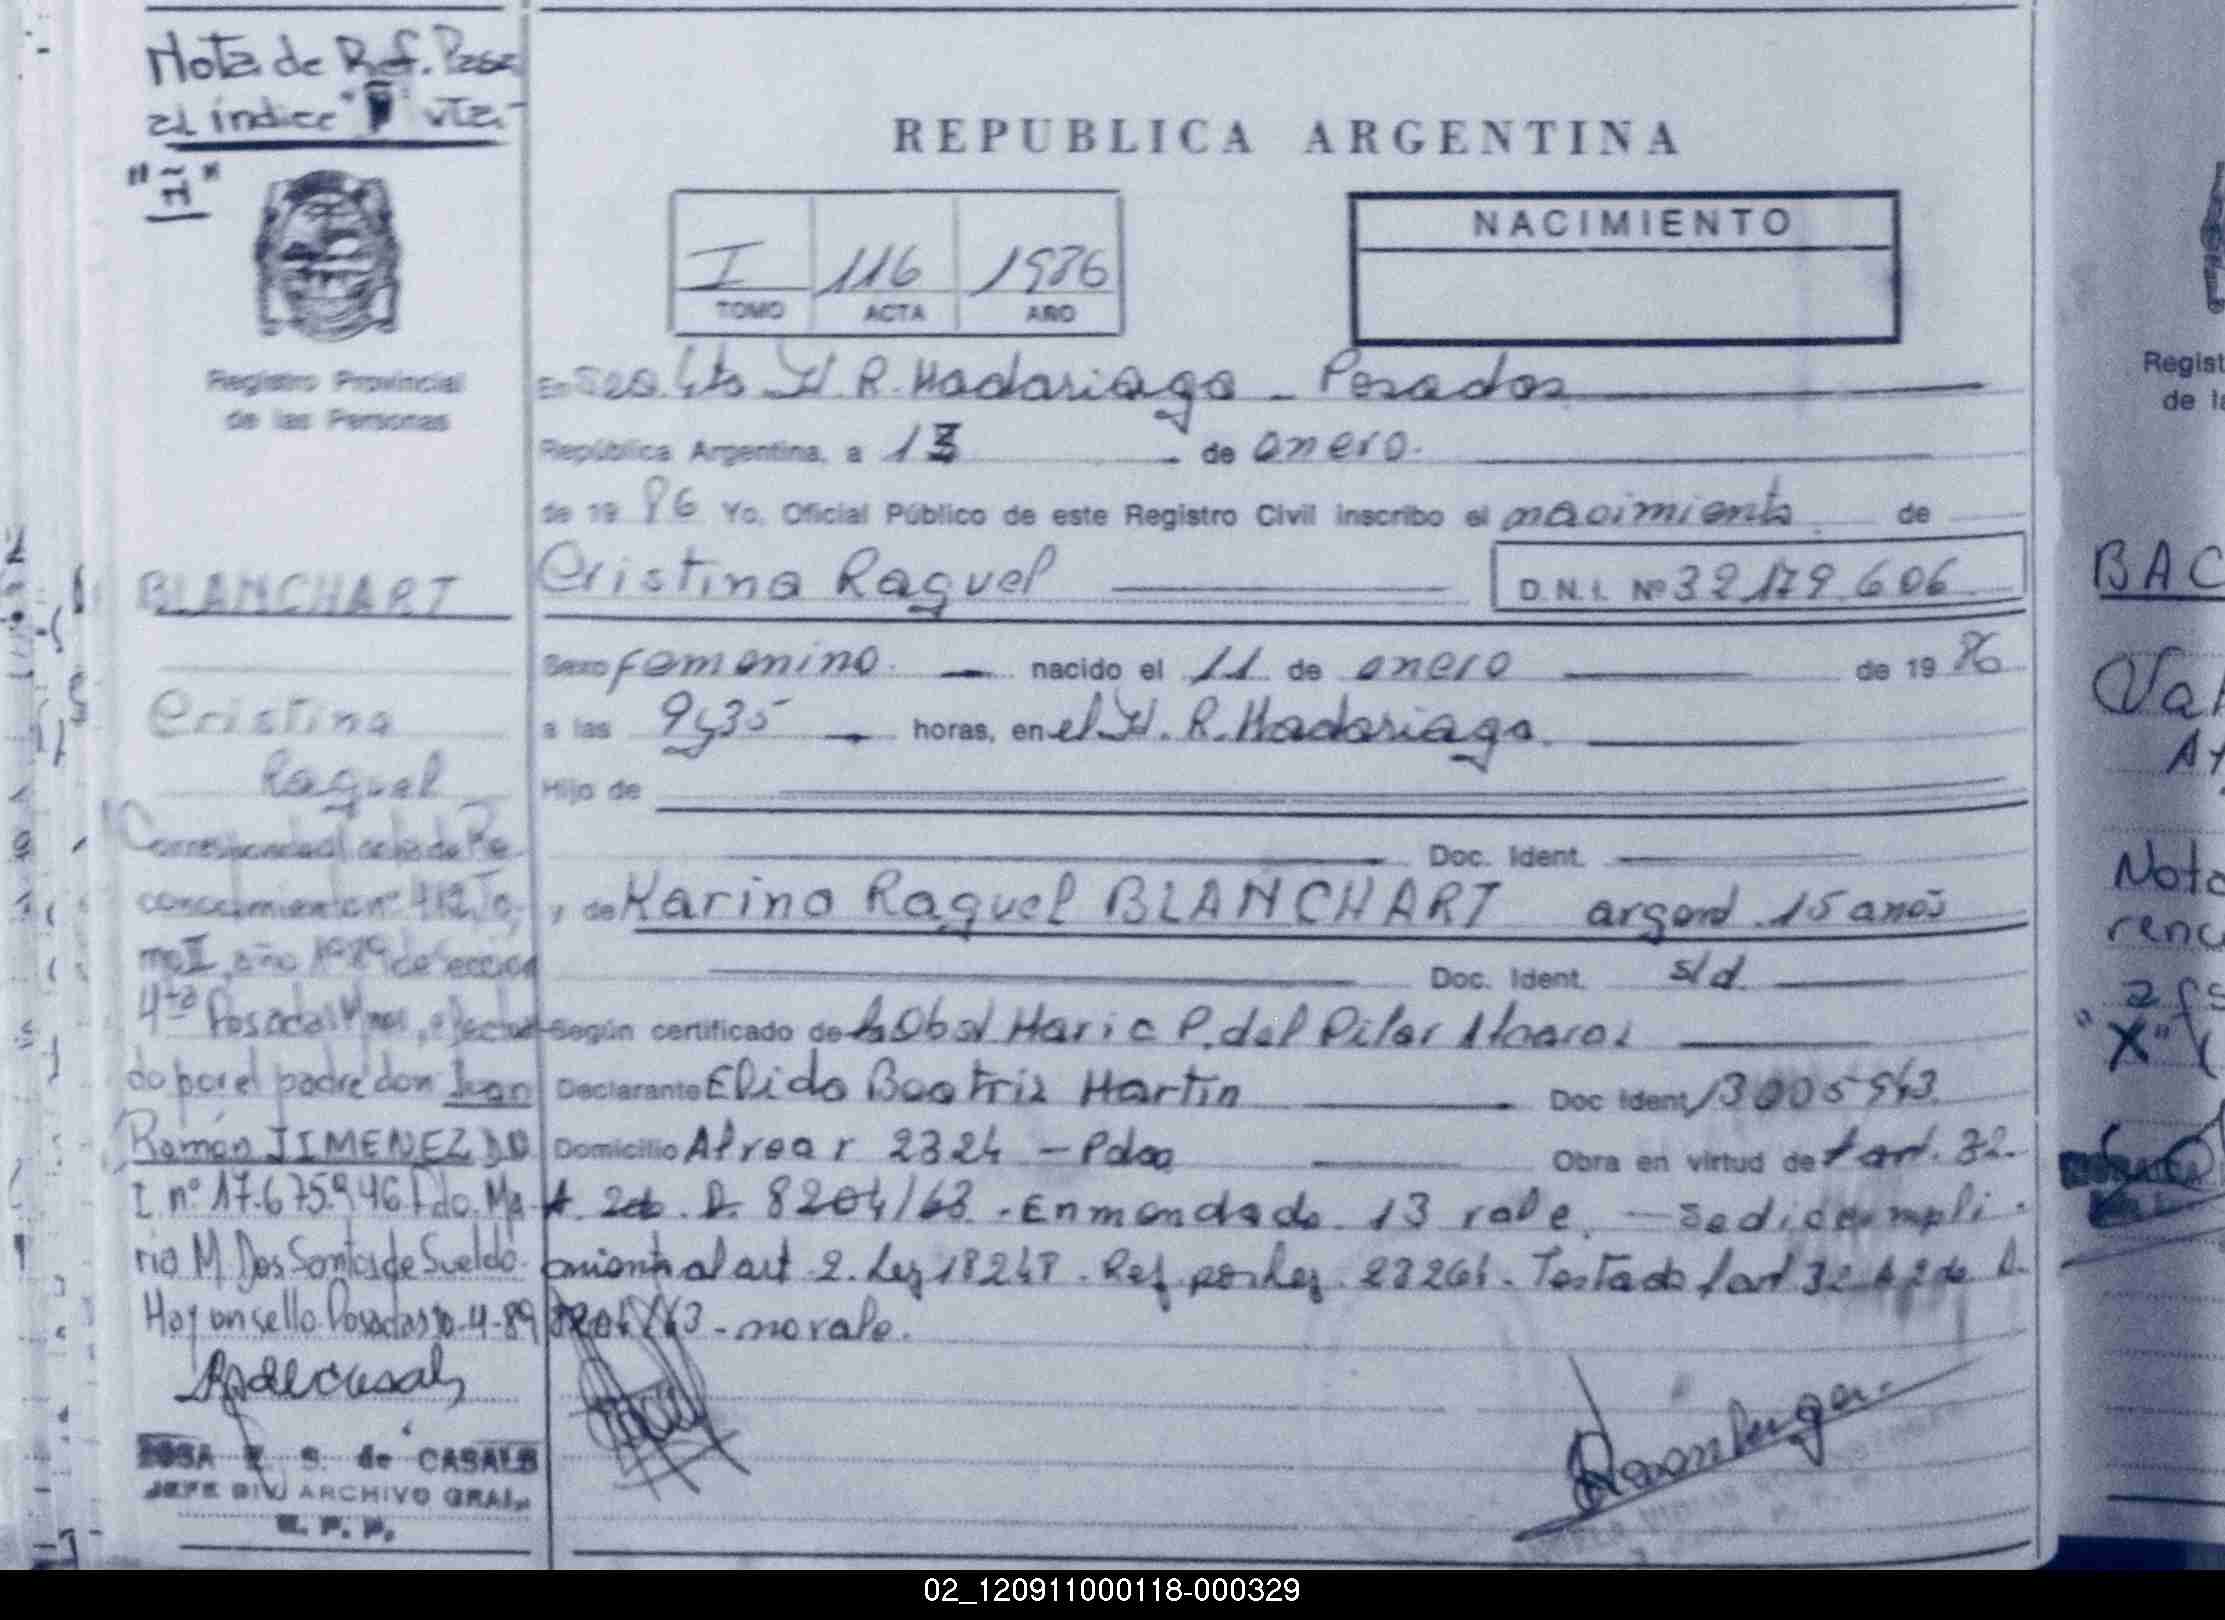 Nota de Ref. Pasa
al índice " " vta-
"Ñ"
Registro Provincial
de las Personas
BLANCHART
Cristina
Raquel
Corresponde al acta de Re
conocimiento nº 412, To,
mo II, año 1989 de sección
4ta Posadas Mnes, efectua
do por el padre don Juan
Ramón JIMENEZ D.N
I. nº 17.675.946 Fdo. Ma
ria M. Dos Santos de Sueldo.
Hay un sello. Posadas 10-4-89
ROSA E. S. de CASALS
JEFE DIV ARCHIVO GRAL.
R. P. P.
REPUBLICA ARGENTINA
I 116 1986
TOMO ACTA AÑO
NACIMIENTO
En H. R. Madariaga - Posadas
República Argentina, a 13 de enero.
de 19 86 Yo, Oficial Público de este Registro Civil inscribo el nacimiento de
Cristina Raquel
D.N.I. Nº 32.179.606
Sexo femenino. nacido el 11 de enero de 19 86
a las 9y35 horas, en el H. R. Madariaga.
Hijo de
Doc. Ident.
y de Karina Raquel BLANCHART argent. 15 años
Doc. Ident. s/d
Según certificado de la Obst Maria P. del Pilar
Declarante Elida Beatriz Martin Doc Ident 13005943
Domicilio Alvear 2324 - Pdas Obra en virtud de l art. 32.
A. 2do. D. 8204/63. - Enmendado. 13 vale. - Se dió cumpli
miento al art. 2. Ley 18248. Ref. por Ley. 23264. Testado l art 32 A 2do D.
8204/63 - no vale.
BAC
Regist
de la
Nota
"X"
02_120911000118-000329